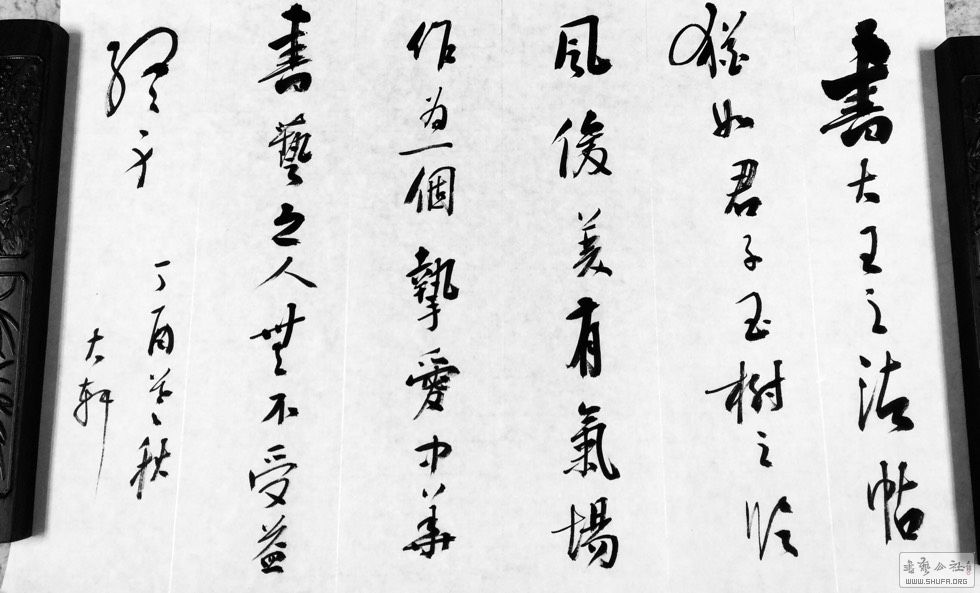 書大王之法帖
猶如君子玉樹之臨
風俊美有氣場
作為一個摯愛中華
書藝之人無不受益
終身
丁酉秋
大軒
書藝公社
WWW.SHUFA.ORG